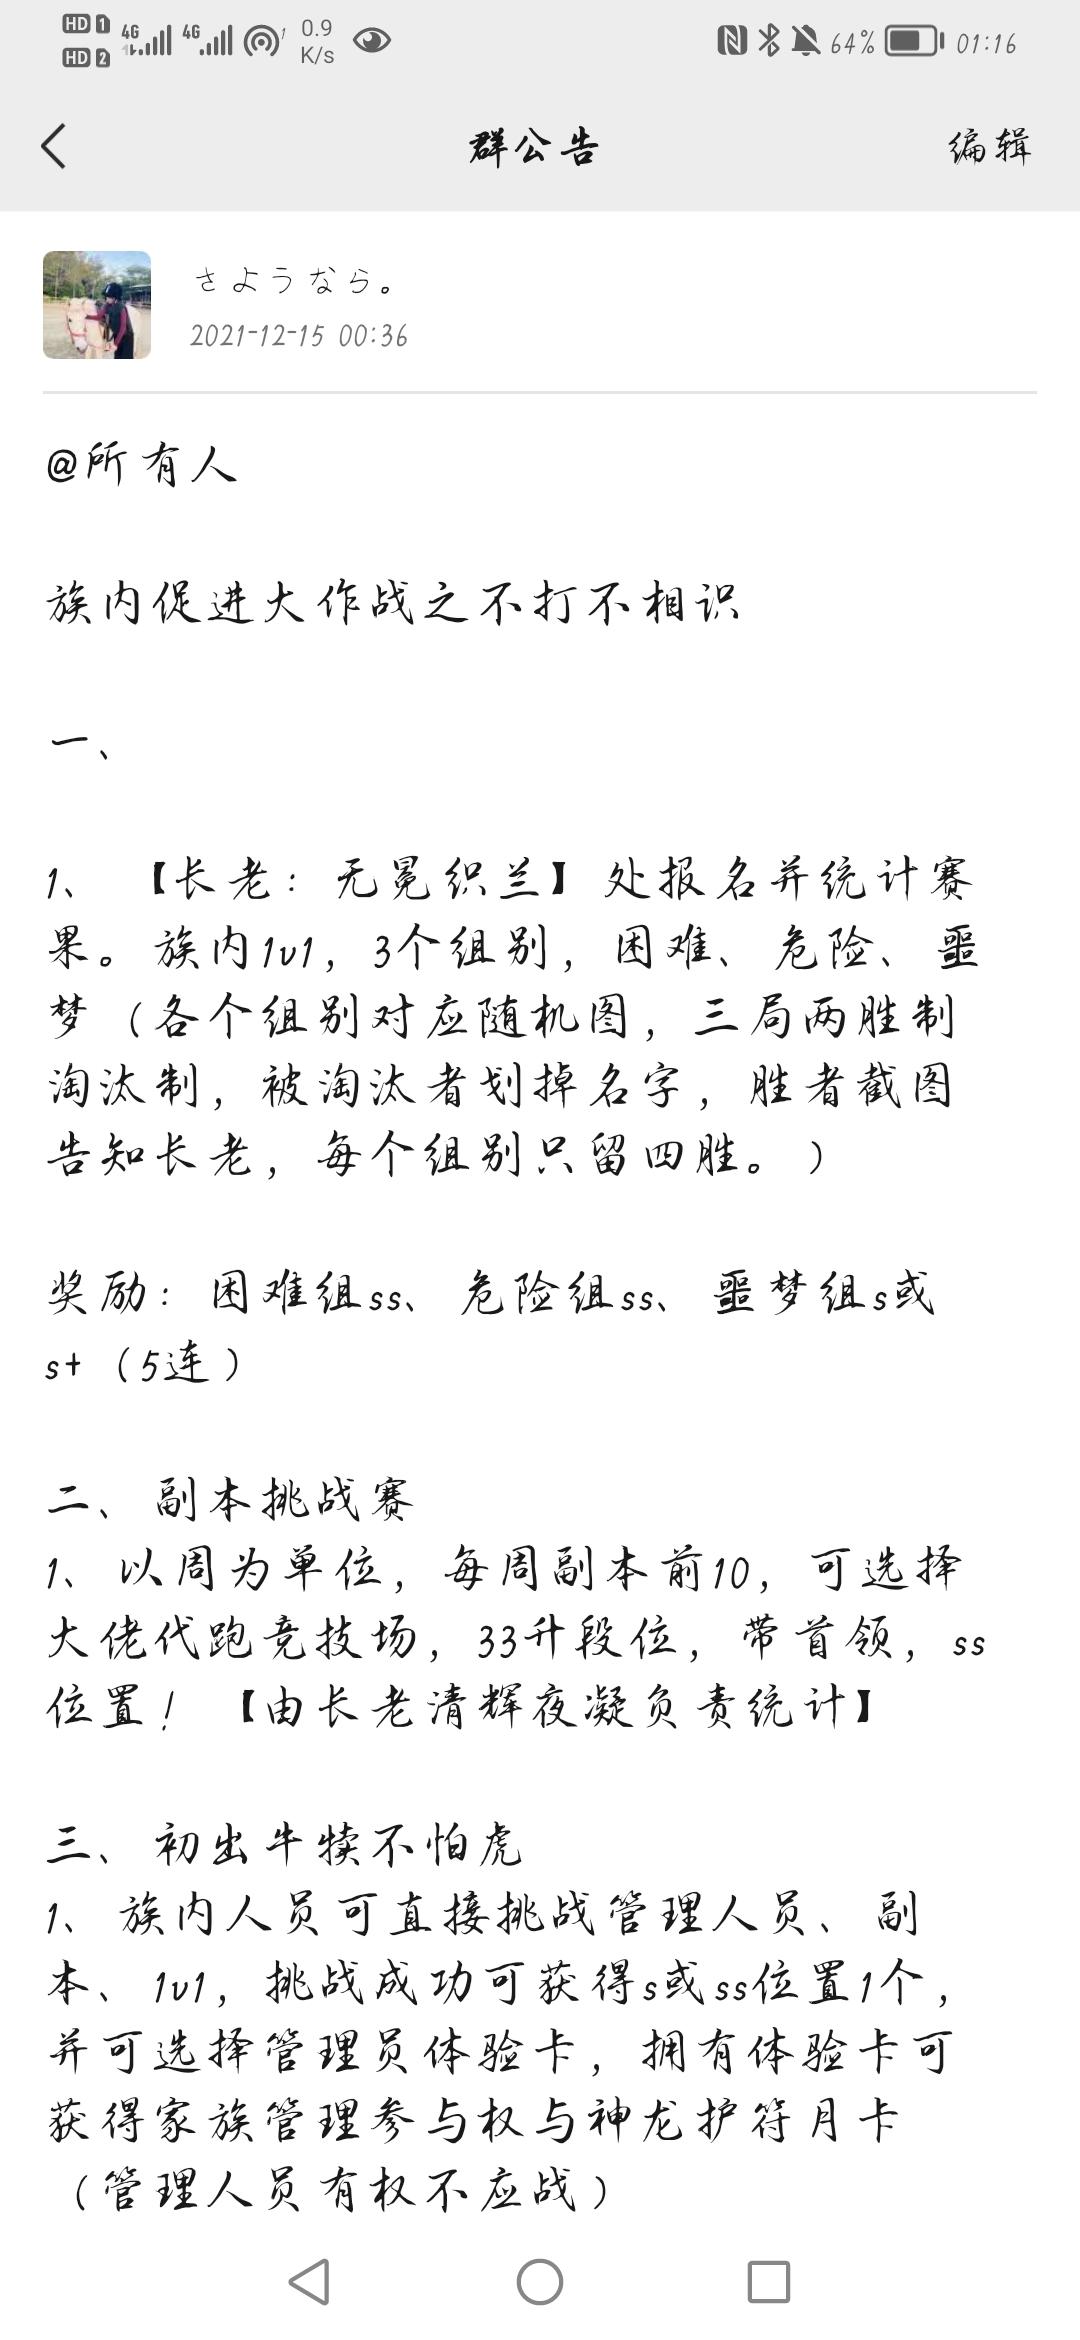 HD 1 4G 4G 1 0.9 K/s 64% 01:16
HD 2
群公告 编辑
さようなら。
2021-12-15 00:36
@所有人
族内促进大作战之不打不相识
一、
1、【长老：无冕织兰】处报名并统计赛
果。族内1v1，3个组别，困难、危险、噩
梦（各个组别对应随机图，三局两胜制
淘汰制，被淘汰者划掉名字，胜者截图
告知长老，每个组别只留四胜。）
奖励：困难组ss、危险组ss、噩梦组s或
s+（5连）
二、副本挑战赛
1、以周为单位，每周副本前10，可选择
大佬代跑竞技场，33升段位，带首领，ss
位置！【由长老清辉夜凝负责统计】
三、初出牛犊不怕虎
1、族内人员可直接挑战管理人员、副
本、1v1，挑战成功可获得s或ss位置1个，
并可选择管理员体验卡，拥有体验卡可
获得家族管理参与权与神龙护符月卡
（管理人员有权不应战）